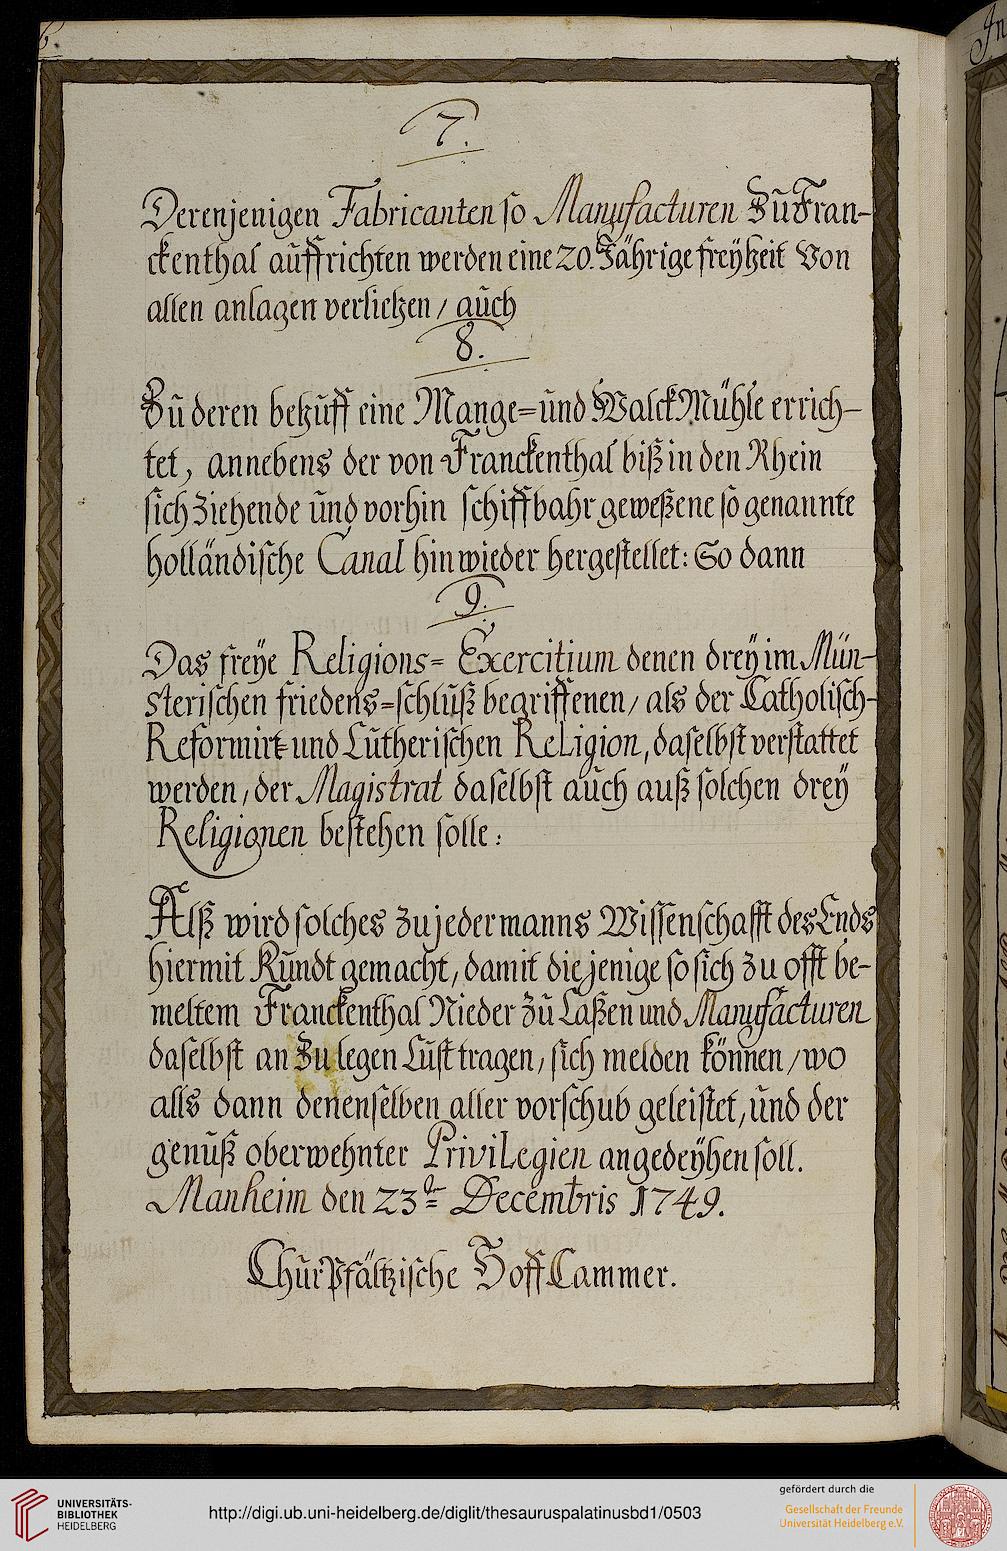 7.
Derenjenigen Fabricanten so Manufacturen Zu Fran-
ckenthal auffrichten werden eine 20. Jährige freÿheit Von
allen anlagen verliehen / auch
8.
Zu deren behuff eine Mange= und Walck Mühle errich-
tet, annebens der von Franckenthal biß in den Rhein
sich Ziehende und vorhin schiffbahr geweßene so genannte
holländische Canal hinwieder hergestellet: So dann
9.
Das freÿe Religions= Exercitium denen dreÿ im Mün-
sterischen friedens=schluß begriffenen / als der Catholisch-
Reformirt= und Lutherischen ReLigion, daselbst verstattet
werden, der Magistrat daselbst auch auß solchen dreÿ
Religionen bestehen solle:
Alß wird solches zu jedermanns Wissenschafft des Ends
hiermit Kundt gemacht, damit diejenige so sich zu offt be-
meltem Franckenthal Nieder Zu Laßen und Manufacturen
daselbst an Zu legen Lust tragen, sich melden können / wo
alls dann denenselben aller vorschub geleistet, und der
genuß oberwehnter PriviLegien angedeÿhen soll.
Manheim den 23ten Decembris 1749.
ChurPfältzische Hoff Cammer.
In
UNIVERSITÄTS-
BIBLIOTHEK
HEIDELBERG
http://digi.ub.uni-heidelberg.de/diglit/thesauruspalatinusbd1/0503
gefördert durch die
Gesellschaft der Freunde
Universität Heidelberg e.V.